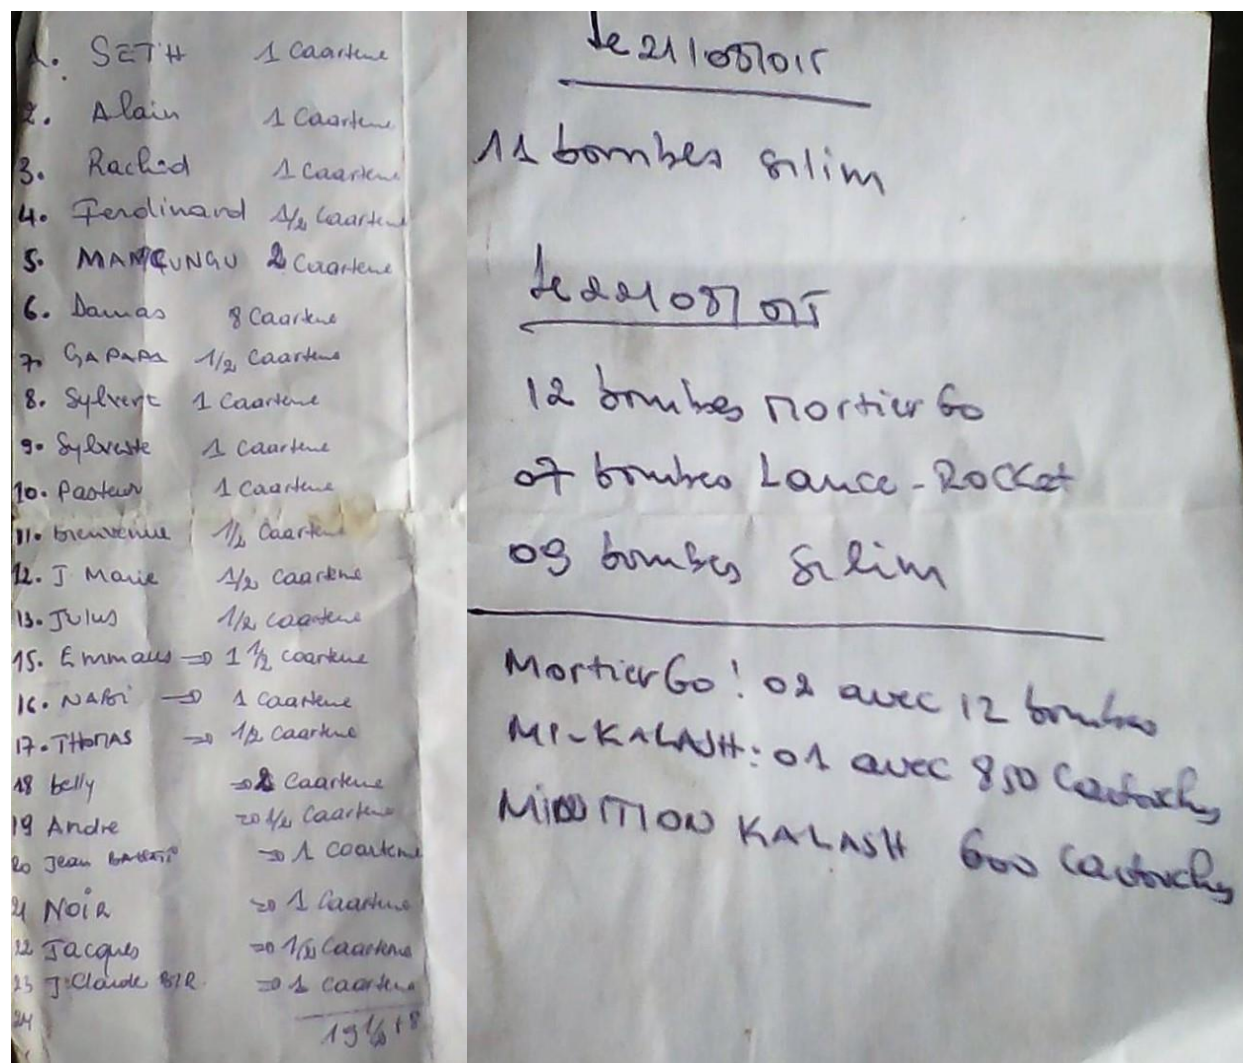 1. SETH 1 Caartene
2. Alain 1 Caartene
3. Rachid 1 Caartene
4. Ferdinand 1/2 Caartene
5. 2 Caartene
6. Damas 8 Caartene
7. GAPAPA 1/2 Caartene
8. Sylvert 1 Caartene
9. Sylveste 1 Caartene
10. Pasteur 1 Caartene
11. bienvenue 1/2 Caartene
12. J Marie 1/2 Caartene
13. Julus 1/2 Caartene
15. Emmaus => 1 1/2 Caartene
16. NABi → 1 Caartene
17. THOMAS => 1/2 Caartene
18 belly => Caartene
19 Andre => 1/2 Caartene
20 Jean => 1 Caartene
21 NOIR => 1 Caartene
22 Jacques => 1/2 Caartene
23 J. Claude => 1 Caartene
24
Le 21/08/015
11 bombes silim
Le 22/08/015
12 bombes mortier 60
07 bombes Lance-Rocket
09 bombes silim
Mortier 60: 02 avec 12 bombes
Mi-KALASH: 01 avec 850 Cartouches
KALASH 600 Cartouches